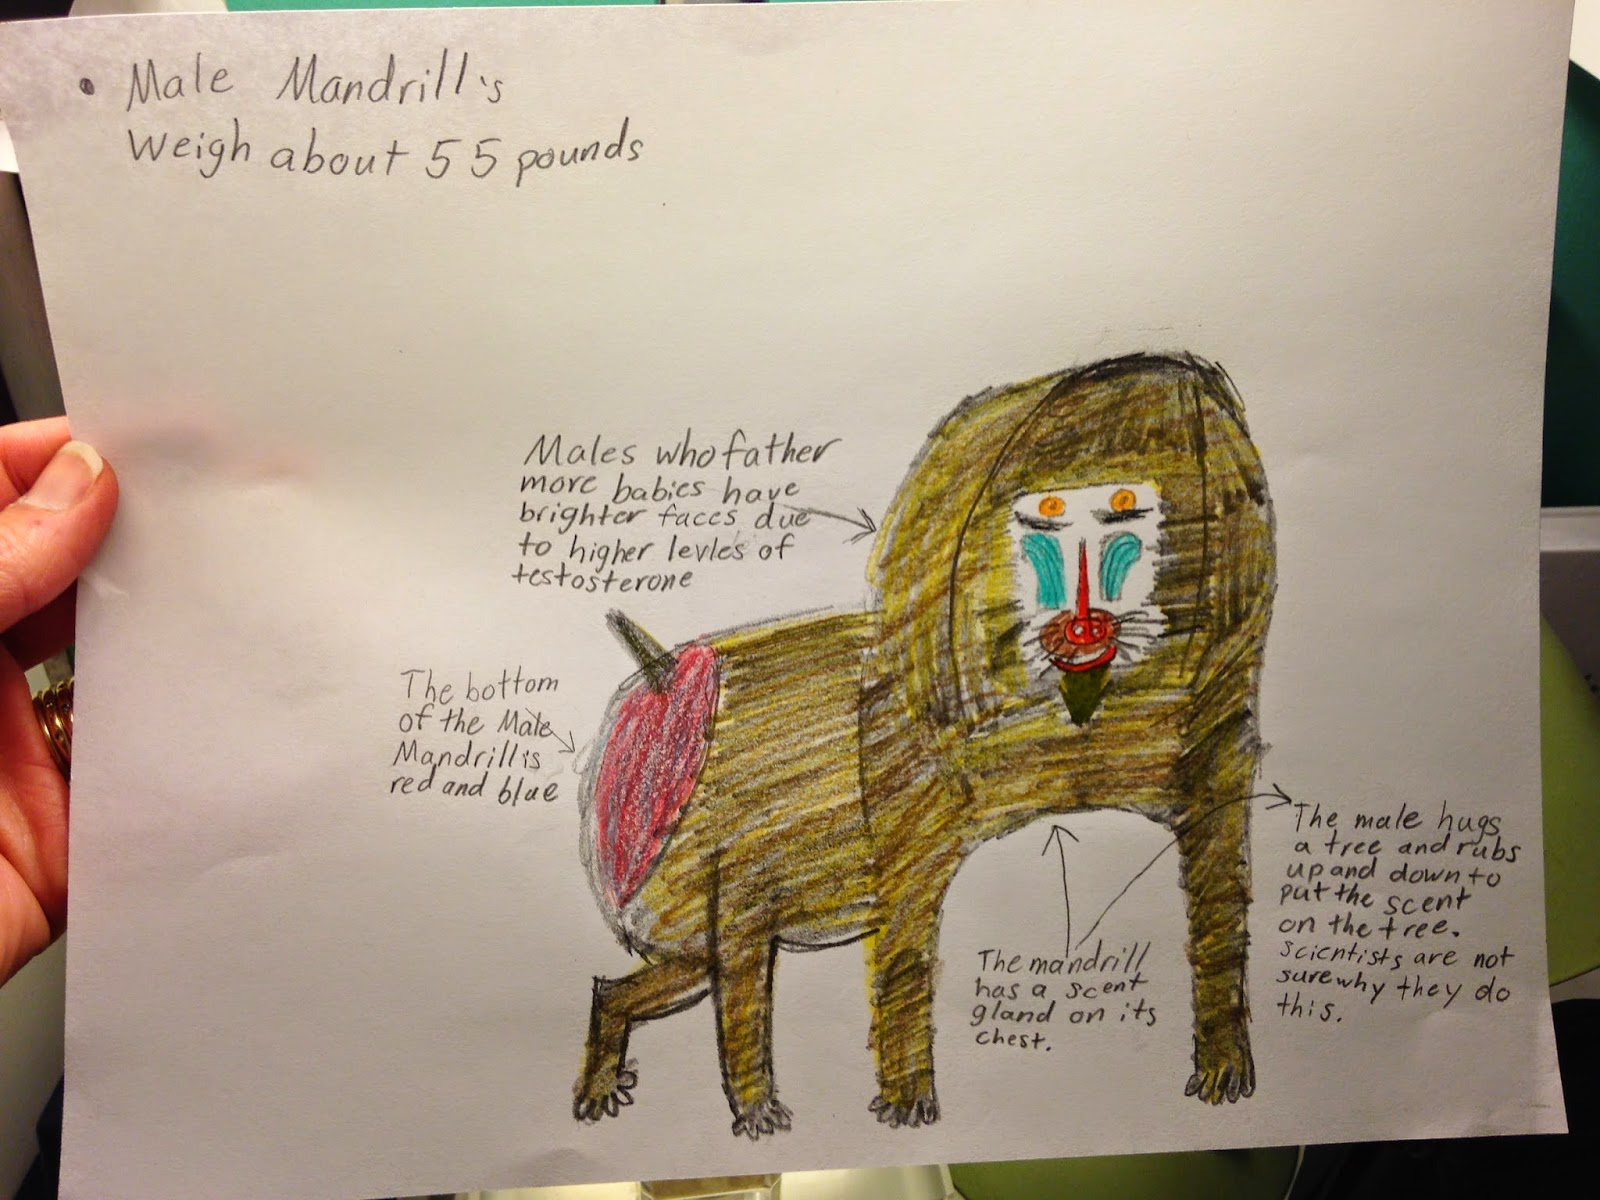 • Male Mandrill's
Weigh about 55 pounds
Males who father
more babies have
brighter faces due
to higher levles of
testosterone
The bottom
of the Male
Mandrill is
red and blue
The mandrill
has a scent
gland on its
chest.
The male hugs
a tree and rubs
up and down to
put the scent
on the tree.
Scientists are not
sure why they do
this.